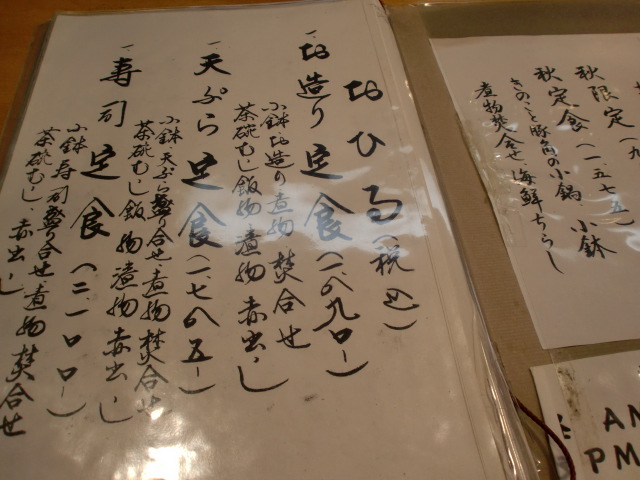 おひる（税込）
一、お造り定食（一、八九〇ー）
小鉢 お造り 煮物 焚合せ
茶碗むし 飯物 煮物 赤出し
一、天ぷら定食（一、七八五ー）
小鉢 天ぷら盛り合せ 煮物焚合せ
茶碗むし 飯物 漬物 赤出し
一、寿司定食（二、一〇〇ー）
小鉢 寿司盛り合せ、煮物 焚合せ
茶碗むし、赤出し
秋限定（九
秋定食（一、五七五）
きのこと豚角の小鍋 小鉢
煮物焚合せ 海鮮ちらし
AM
PM